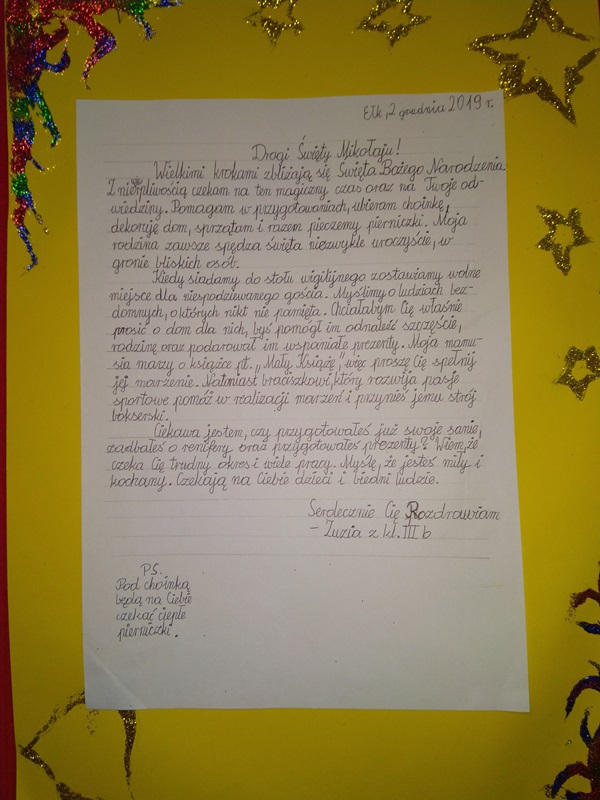 Ełk, 2 grudnia 2019 r.
Drogi Święty Mikołaju!
Wielkimi krokami zbliżają się Święta Bożego Narodzenia.
Z niecierpliwością czekam na ten magiczny czas oraz na Twoje od-
wiedziny. Pomagam w przygotowaniach, ubieram choinkę,
dekoruję dom, sprzątam i razem pieczemy pierniczki. Moja
rodzina zawsze spędza święta niezwykle uroczyście, w
gronie bliskich osób.
Kiedy siadamy do stołu wigilijnego zostawiamy wolne
miejsce dla niespodziewanego gościa. Myślimy o ludziach bez-
domnych, o których nikt nie pamięta. Chciałabym Cię właśnie
prosić o dom dla nich, byś pomógł im odnaleźć szczęście,
rodzinę oraz podarował im wspaniałe prezenty. Moja mamu-
sia marzy o książce pt. „Mały Książę", więc proszę Cię spełnij
jej marzenie. Natomiast braciszkowi, który rozwija pasje
sportowe pomóż w realizacji marzeń i przynieś jemu strój
bokserski.
Ciekawa jestem, czy przygotowałeś już swoje sanie,
zadbałeś o renifery oraz przygotowałeś prezenty? Wiem, że
czeka Cię trudny okres i wiele pracy. Myślę, że jesteś miły i
kochany. Czekają na Ciebie dzieci i biedni ludzie.
Serdecznie Cię Pozdrawiam
– Zuzia z kl. III b
PS.
Pod choinką
będą na Ciebie
czekać ciepłe
pierniczki.